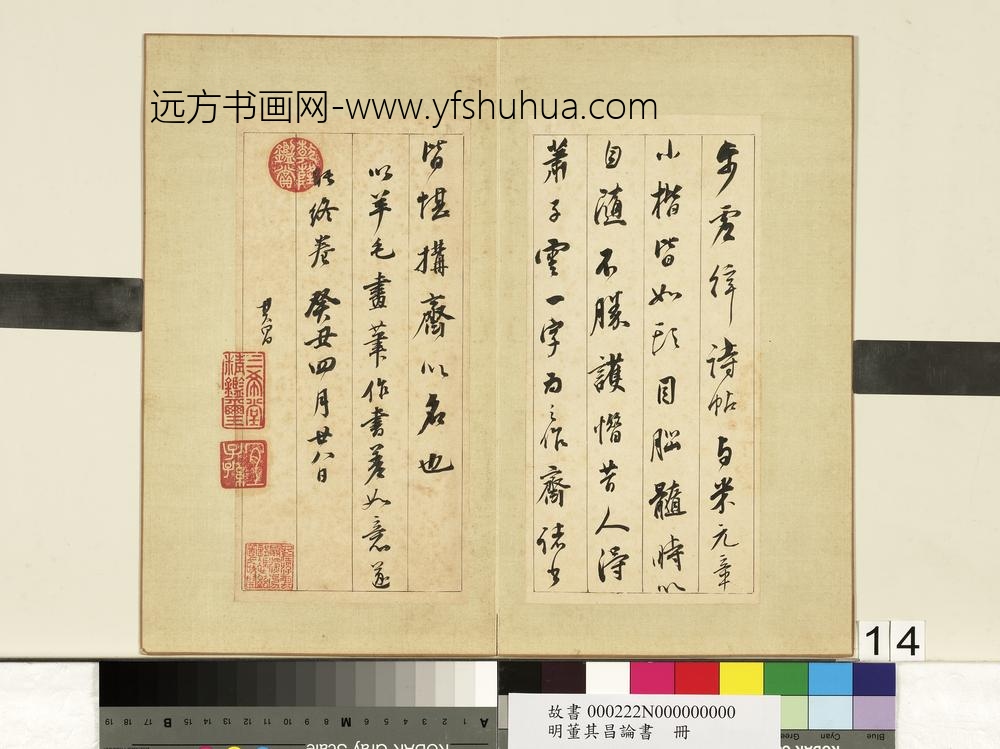 远方书画网-www.yfshuhua.com
步虛律詩帖与米元章
小楷皆如頭目腦髓時以
自隨不勝護惜昔人得
蕭子雲一字為之作齋諸書
皆堪搆齋以名也
以羊毛畫筆作書差如意遂
終卷癸丑四月廿八日
其昌
乾隆鑑賞
三希堂精鑑璽
宜子孫
14
故書 000222N000000000
明董其昌論書 冊
19 18 17 16 15 B 14 13 12 11 10 9 8 M 7 6 5 4 3 2 1 A
KODAK Gray Scale
Blue
Cyan
Green